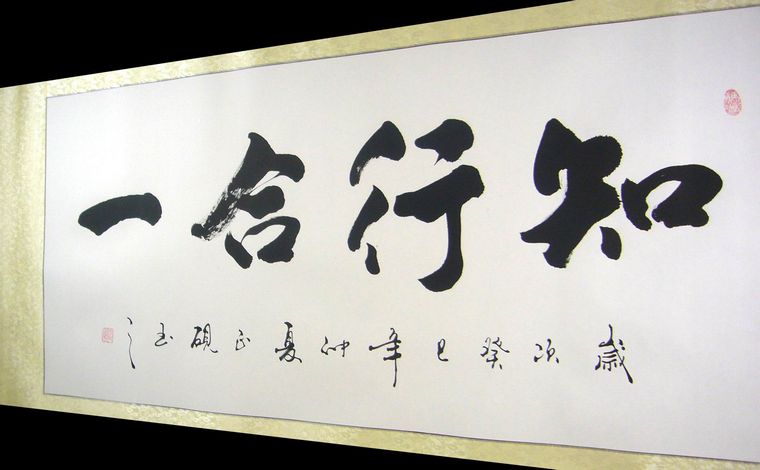 知行合一
歲次癸巳年仲夏正硯書